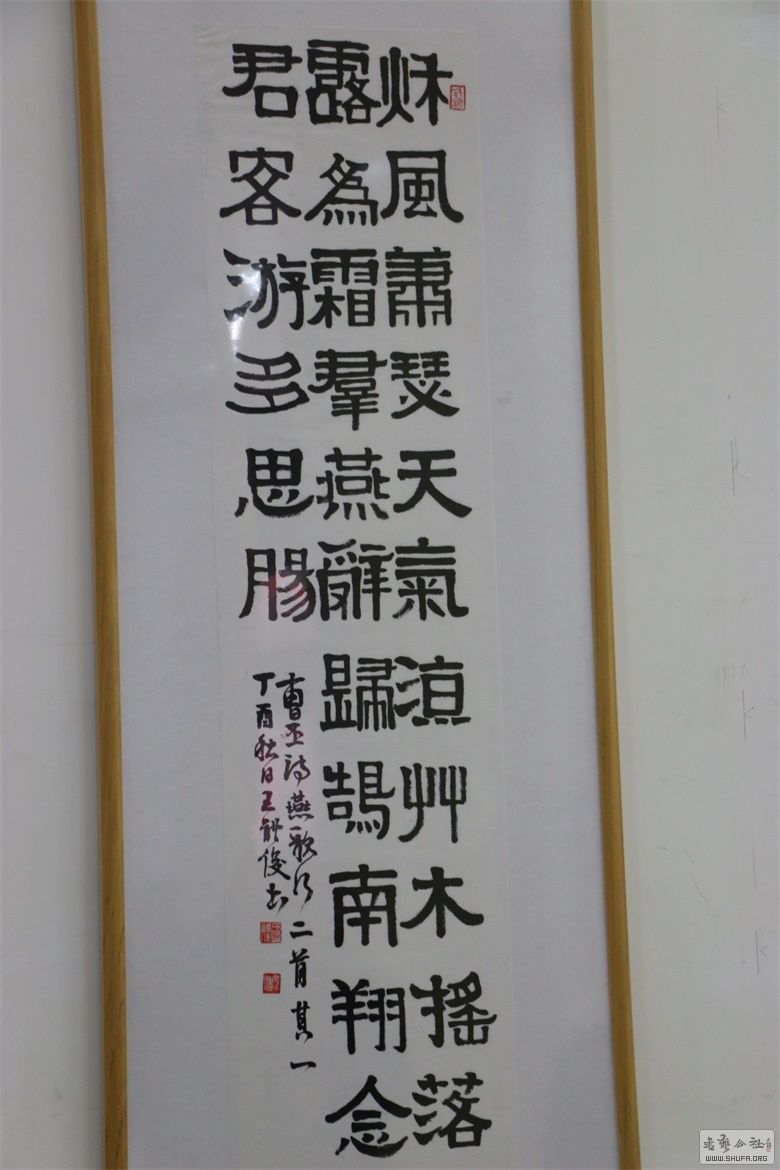 秌風蕭瑟天氣涼艸木搖落
露為霜羣燕辭歸鵠南翔念
君客游多思腸
曹丕詩燕歌行二首其一
丁酉秋日王 俊書
书艺公社
WWW.SHUFA.ORG